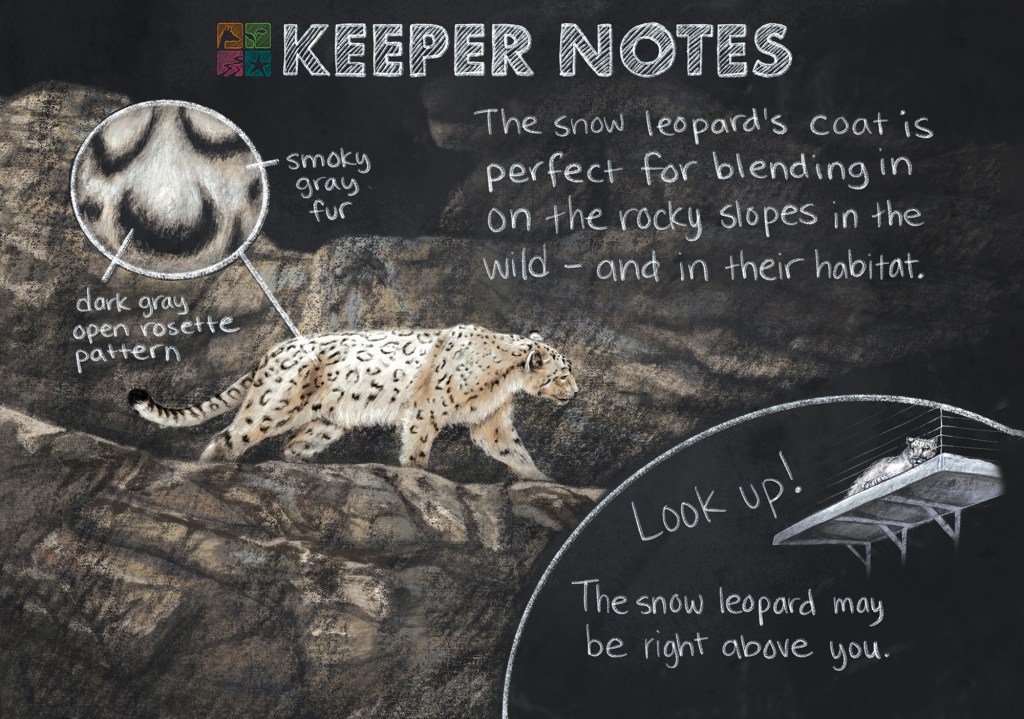 KEEPER NOTES
The snow leopard's coat is
perfect for blending in
on the rocky slopes in the
wild – and in their habitat.
smoky
gray
fur
dark gray
open rosette
pattern
Look up!
The snow leopard may
be right above you.